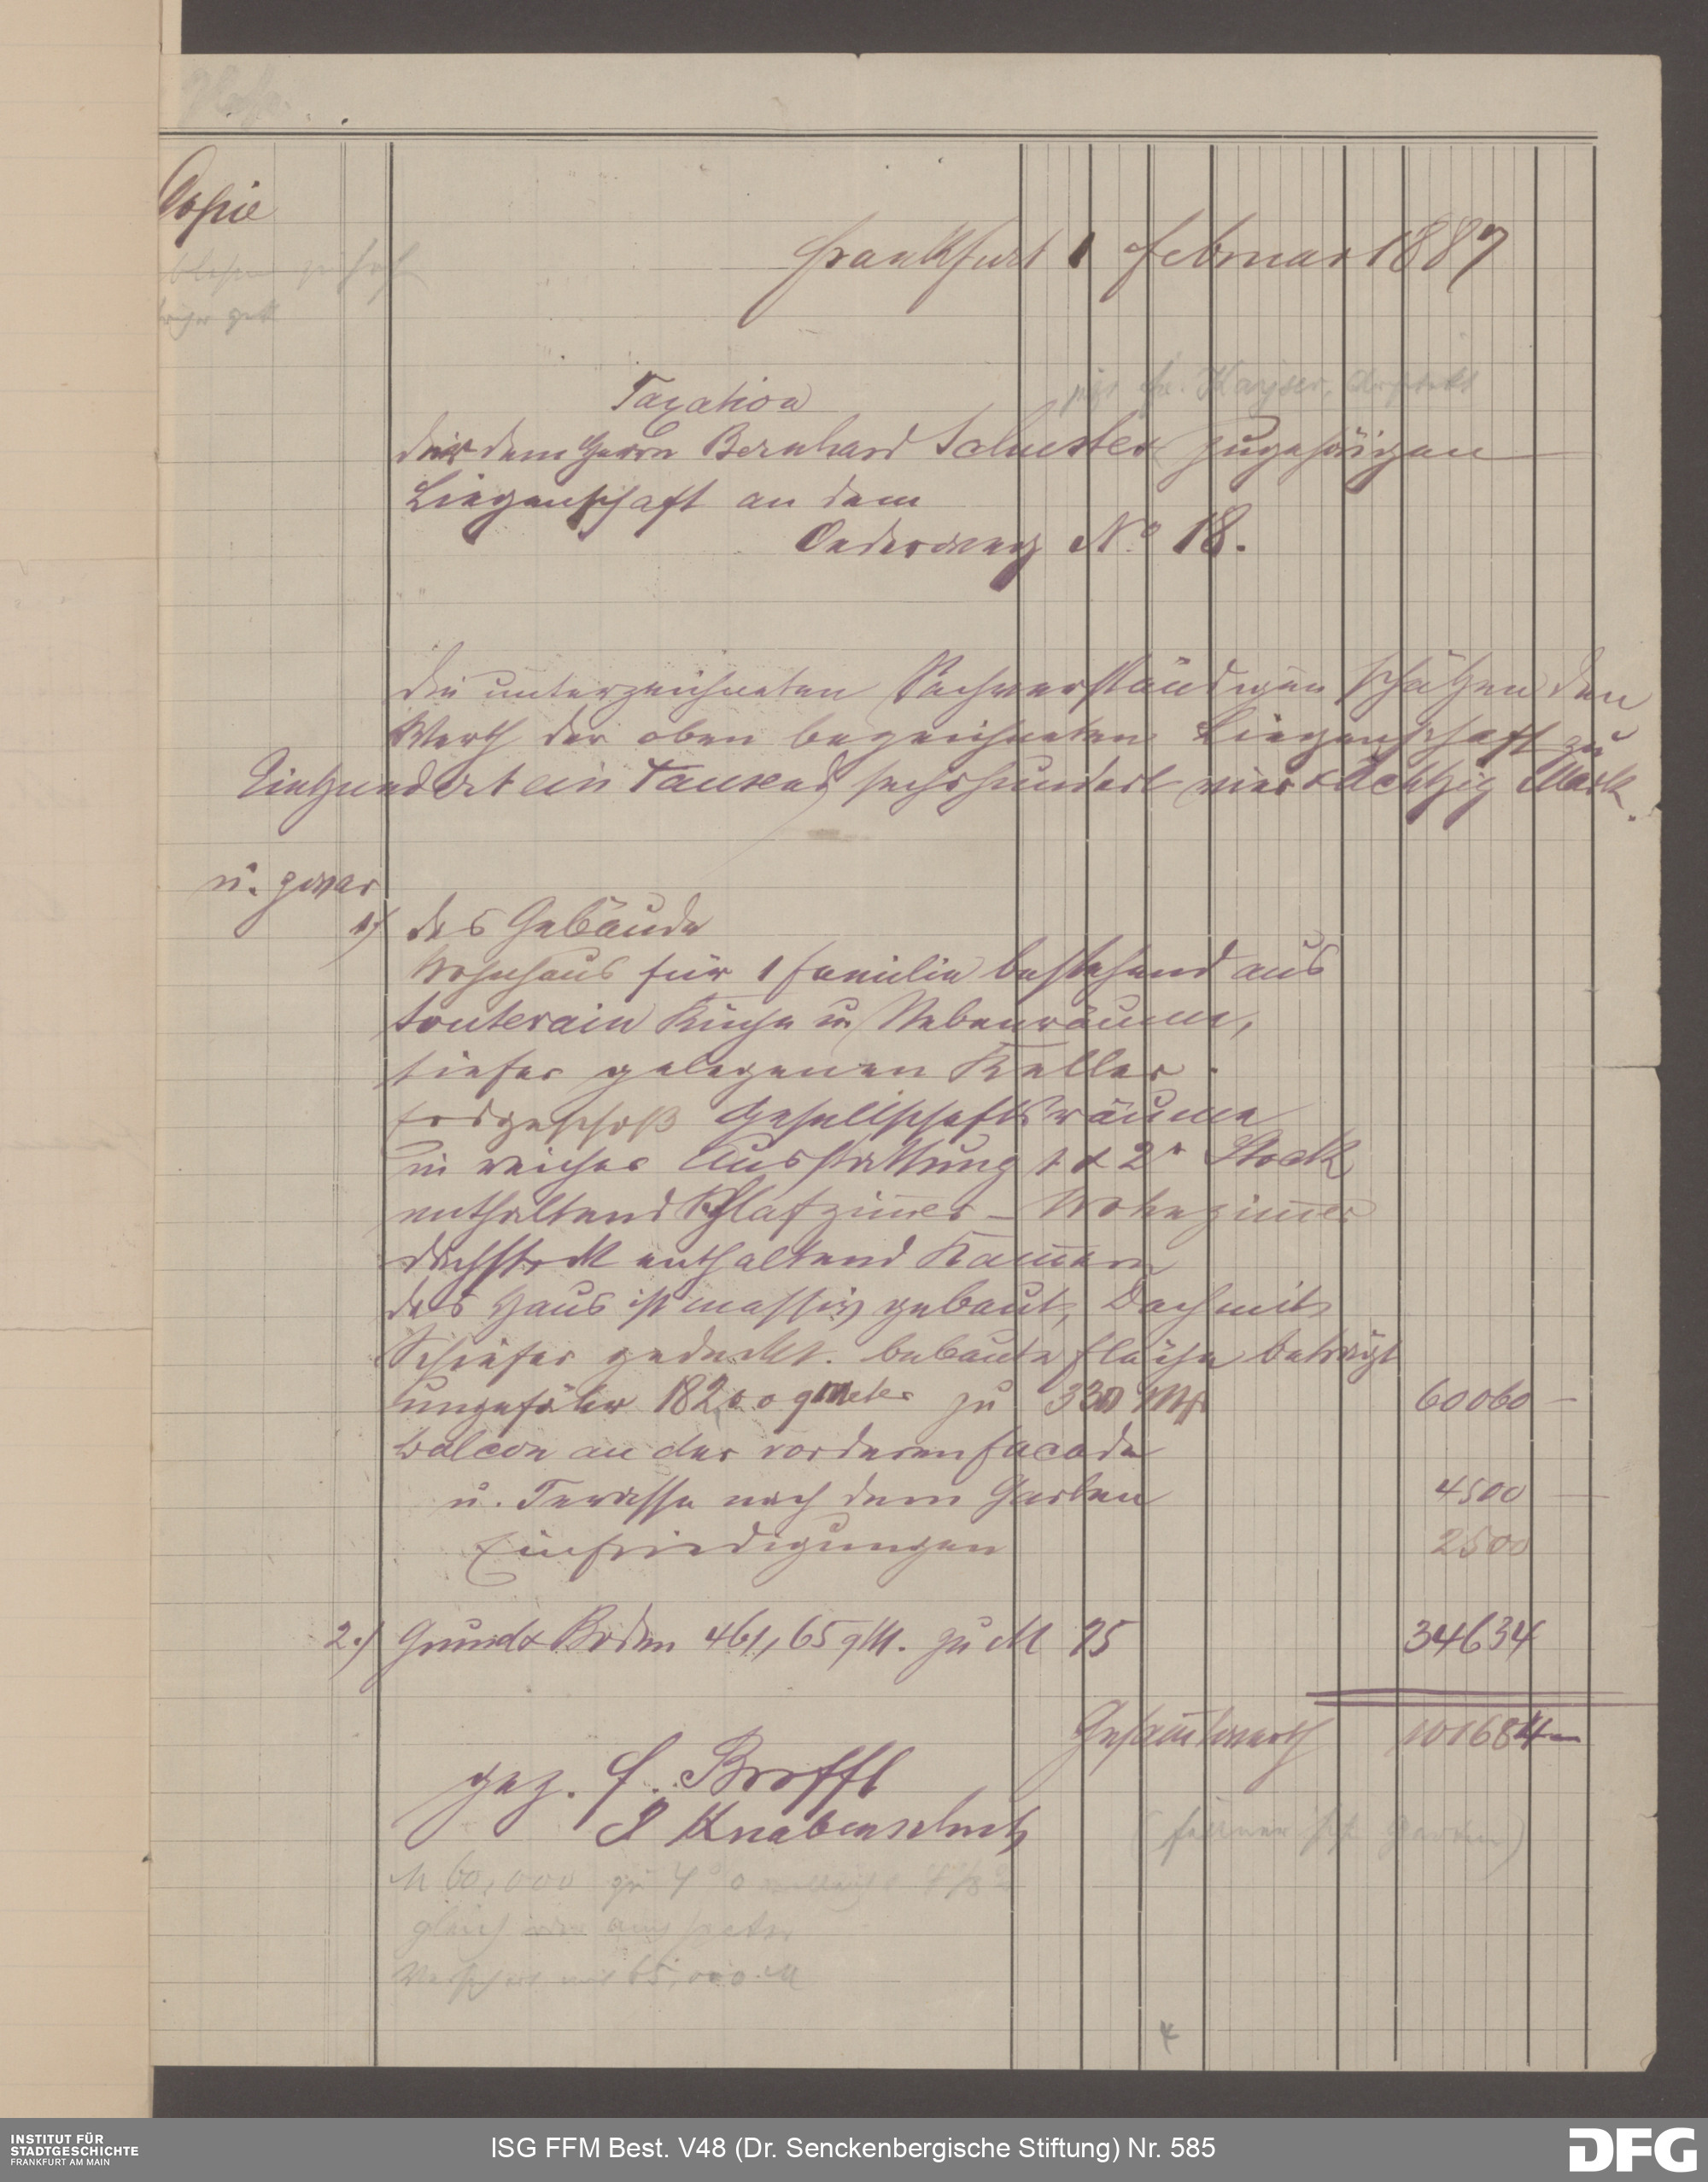 Copie
Frankfurt 1 Februar 1887
Taxation
jetzt Fr. Kayser, Architekt
der dem Herrn Bernhard Schuster zugehörigen
Liegenschaft an dem
Oederweg No 18.
Die unterzeichneten Sachverständigen schätzen den
Werth der oben bezeichneten Liegenschaft zu
Einhundert ein Tausend sechshundert vier & Achtzig Mark.
u. zwar
1) des Gebäude
Wohnhaus für 1 Familie bestehend aus
Souterain Küche u. Nebenräume,
tiefer gelegenen Keller.
Erdgeschoß Gesellschaftsräume
in reicher Ausstattung 1 & 2r Stock
enthaltend Schlafzim̄er – Wohnzim̄er
Dachstock enthaltend Kam̄ern
das Haus ist massiv gebaut, Dach mit
Schiefer gedeckt. bebaute Fläche beträgt
ungefähr 182,00 qmeter zu 330 Mk 60060 —
Balcon an der vorderen Facade
u. Terasse nach dem Garten 4500 —
Einfriedigungen 2500
2.) Grund & Boden 461,65 qM. zu M 75 34634
Gesam̄twerth 101684 —
gez. F. Brofft
J Knabenschuh
M 60,000 zu 4
gleich
65,000 M
INSTITUT FÜR
STADTGESCHICHTE
FRANKFURT AM MAIN
ISG FFM Best. V48 (Dr. Senckenbergische Stiftung) Nr. 585
DFG